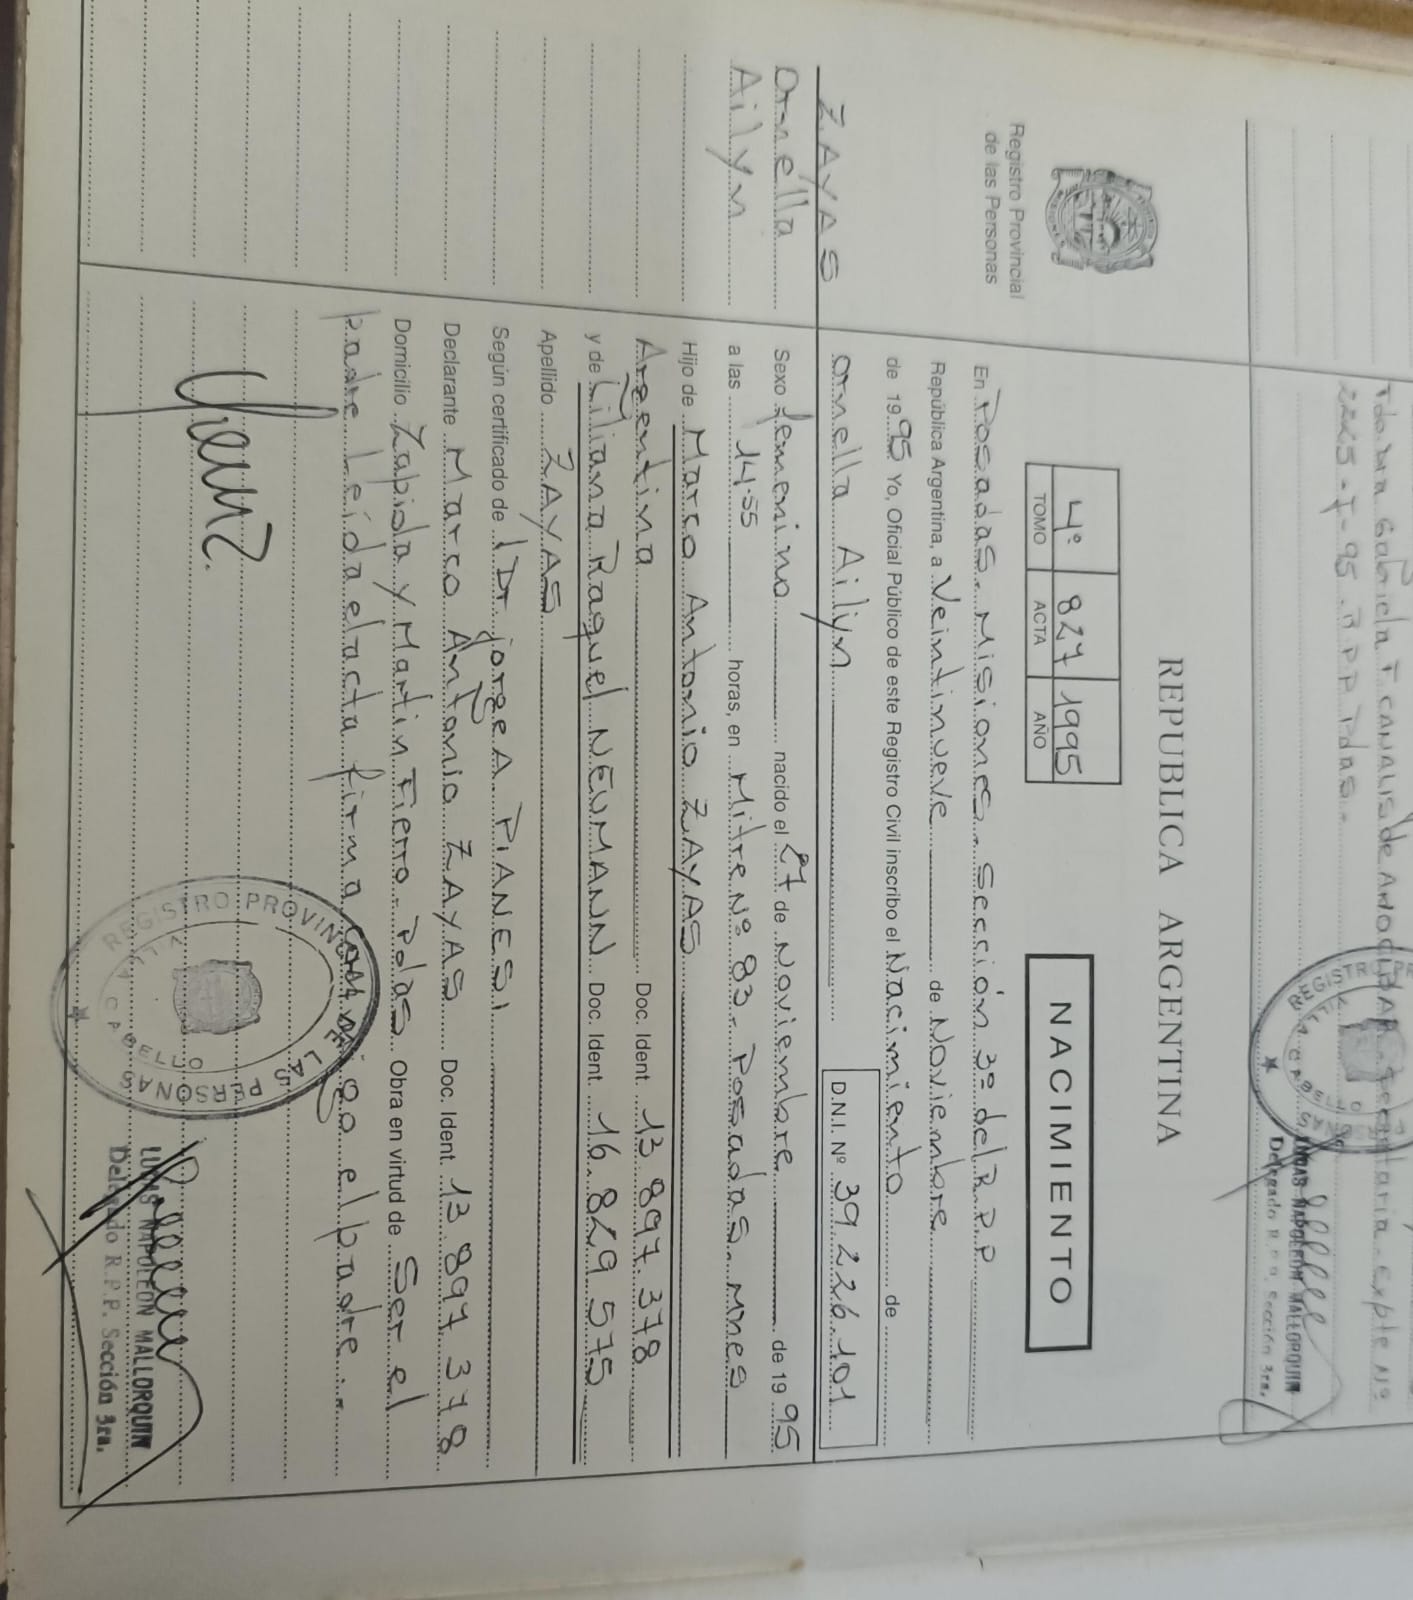 REGISTRO
LUCAS NAPOLEON MALLORQUIN
Delegado R.P.P. Sección 3ra.
REPUBLICA ARGENTINA
Registro Provincial
de las Personas
4º 827 1995
TOMO ACTA AÑO
NACIMIENTO
En Posadas. Misiones. Sección 3º del R.P.P
República Argentina, a Veintinueve de Noviembre
de 1995 Yo, Oficial Público de este Registro Civil inscribo el Nacimiento de
ZAYAS
Ornella
Ailyn
ornella Ailyn D.N.I. Nº 39.226.101
Sexo femenino nacido el 27 de Noviembre de 1995
a las 14.55 horas, en Mitre Nº 83. Posadas. Mnes
Hijo de Marco Antonio ZAYAS
Argentina Doc. Ident. 13 897.378
y de Liliana Raquel NEUMANN Doc. Ident. 16.829 575
Apellido ZAYAS
Según certificado de Dr. jorge A. PIANESI
Declarante Marco Antonio ZAYAS Doc. Ident. 13 897 378
Domicilio Zapiola y Martin Fierro. Pdas Obra en virtud de Ser el
padre Leída el acta firma conmigo el padre
REGISTRO PROVINCIAL DE LAS PERSONAS
VILLA CABELLO
LUCAS NAPOLEON MALLORQUIN
Delegado R.P.P. Sección 3ra.